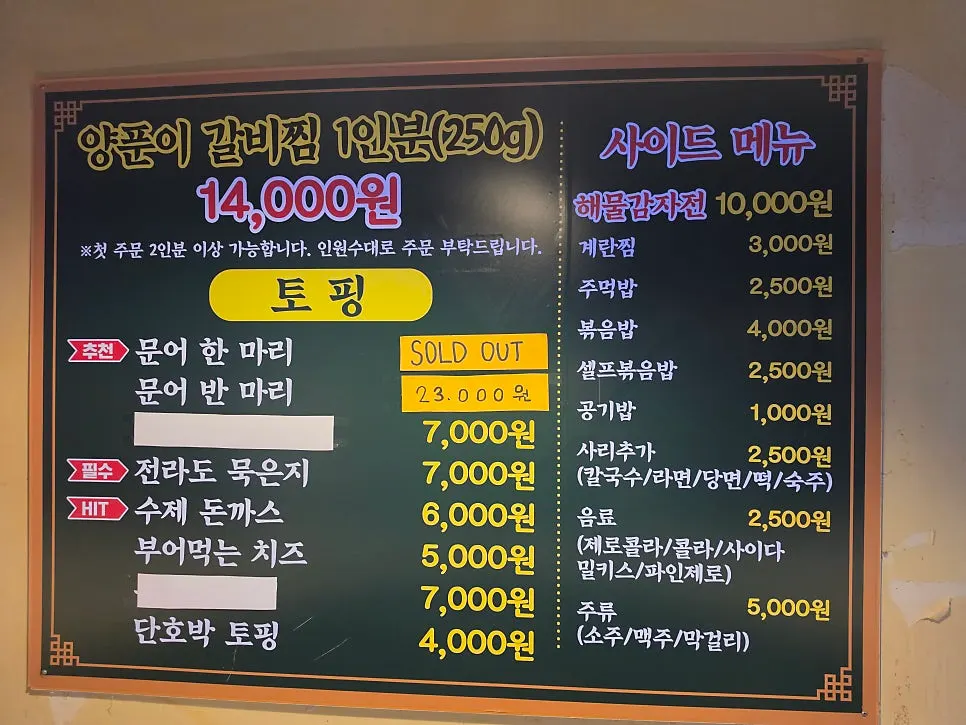 양푼이 갈비찜 1인분(250g)
14,000원
※첫 주문 2인분 이상 가능합니다. 인원수대로 주문 부탁드립니다.
토핑
추천 문어 한 마리 SOLD OUT
문어 반 마리 23.000원
7,000원
필수 전라도 묵은지 7,000원
HIT 수제 돈까스 6,000원
부어먹는 치즈 5,000원
7,000원
단호박 토핑 4,000원
사이드 메뉴
해물감자전 10,000원
계란찜 3,000원
주먹밥 2,500원
볶음밥 4,000원
셀프볶음밥 2,500원
공기밥 1,000원
사리추가 2,500원
(칼국수/라면/당면/떡/숙주)
음료 2,500원
(제로콜라/콜라/사이다
밀키스/파인제로)
주류 5,000원
(소주/맥주/막걸리)